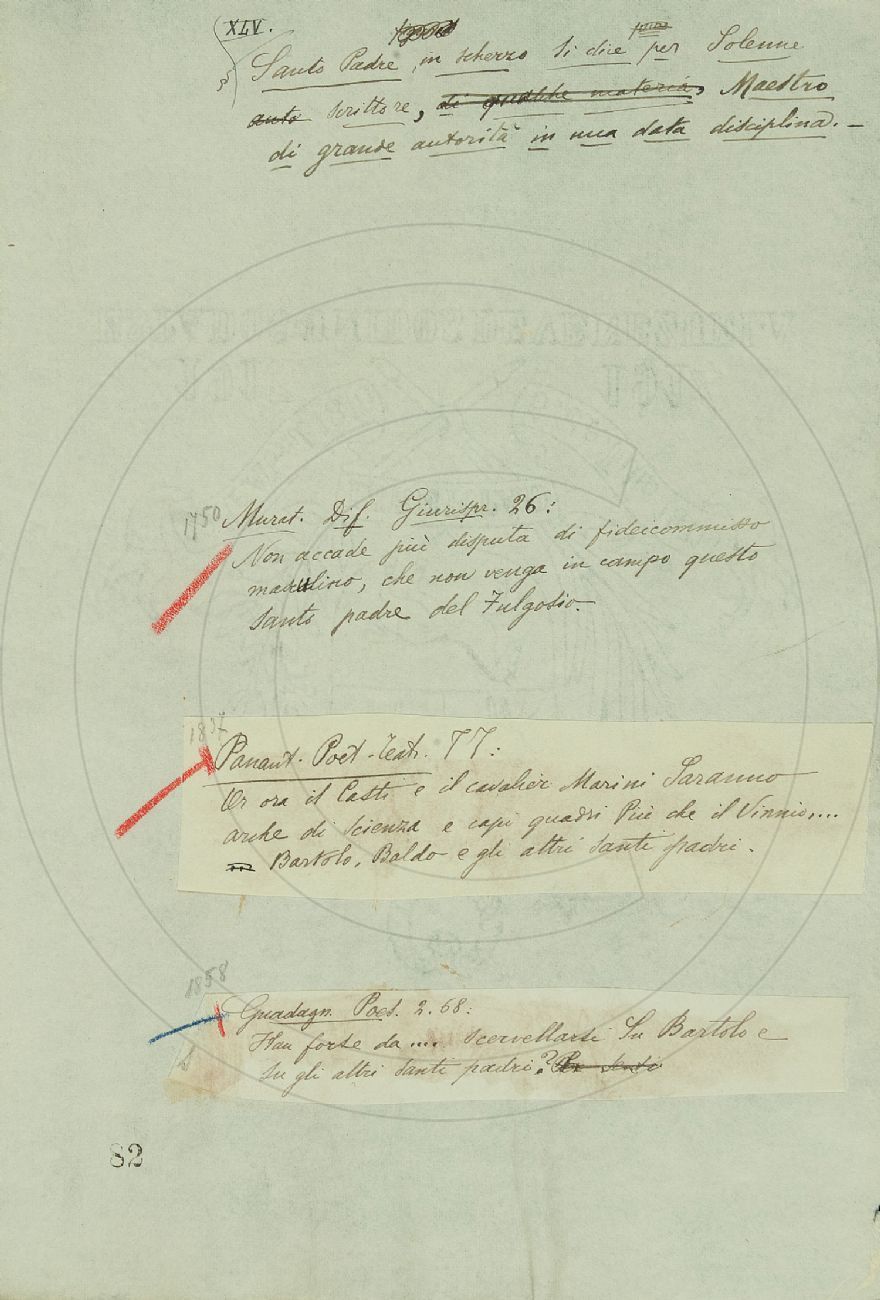 XLV.
§ Santo Padre, in scherzo si dice per Solenne
auto scrittore, di qualche materia, Maestro
di grande autorità in una data disciplina. –
1750 Murat. Dif. Giurispr. 26:
Non accade più disputa di fideicommisso
masculino, che non venga in campo questo
santo padre del Fulgosio.
1837
Panant. Poet. Teatr. 77:
Or ora il Casti e il cavalier Marini Saranno
arche di scienza e capi quadri Più che il Vinnio,...
Bartolo, Baldo e gli altri santi padri.
1858
Guadagn. Poes. 2. 68:
Han forse da .... scervellarsi Su Bartolo e
su gli altri santi padri?
82